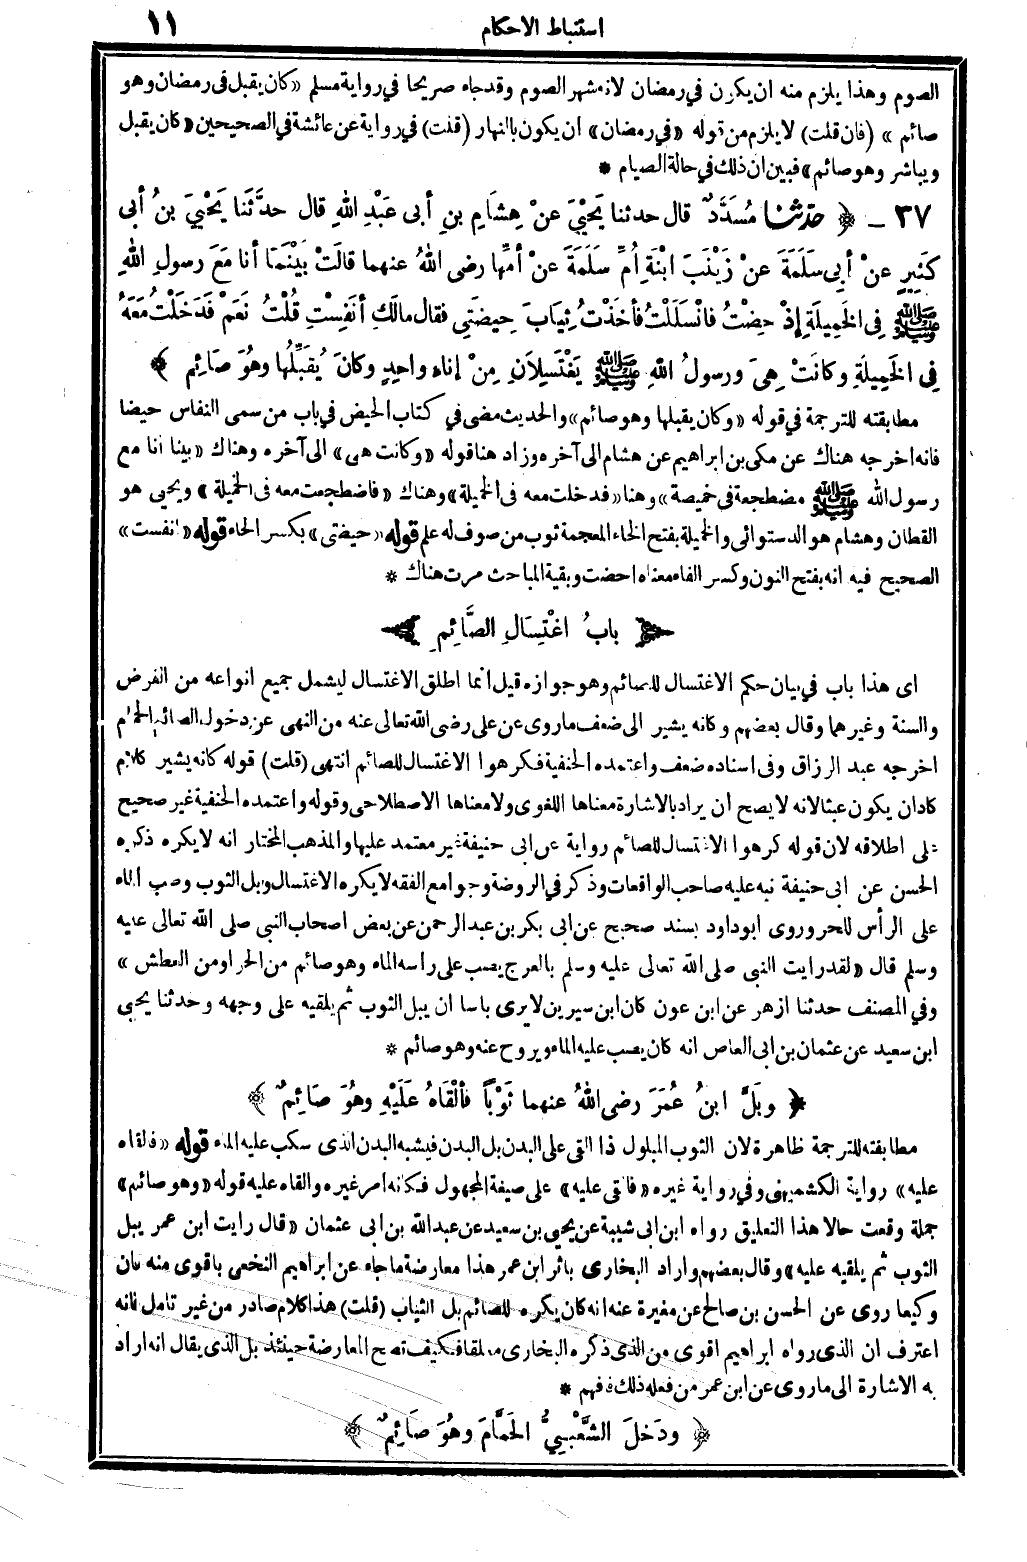 استنباط الاحكام
١١
الصوم وهذا يلزم منه ان يكون في رمضان لانه شهر الصوم وقد جاء صريحا في رواية مسلم «كان يقبل فى رمضان وهو
صائم» (فان قلت) لا يلزم من قوله «في رمضان» ان يكون بالنهار (قلت) في رواية عن عائشة في الصحيحين «كان يقبل
ويباشر وهو صائم» فبين ان ذلك في حالة الصيام *
٣٧ ـ ﴿ حدثنا مُسَدَّدٌ قال حدثنا يَحْيَىَ عنْ هِشَامِ بنِ أبى عَبْدِ اللهِ قال حدَّثَنَا يَحْيَىَ بنُ أبى
كَثِيرٍ عنْ أبِى سَلَمَةَ عنْ زَيْنَبَ ابْنَةِ اُمِّ سَلَمَةَ عنْ أمِّها رضى اللهُ عنهما قالَتْ بَيْنَمَا أنا مَعَ رسولِ اللهِ
ﷺ فِى الخَمِيلَةِ إذْ حِضْتُ فانْسَلَلْتُ فأخَذْتُ ثِيَابَ حِيضَتِي فقال مالَكِ أنَفِسْتِ قُلْتُ نَعَمْ فَدَخَلْتُ مَعَهُ
فِى الخَمِيلَةِ وكانَتْ هِىَ ورسولُ اللهِ ﷺ يَغْتَسِلَانِ مِنْ إناءٍ واحِدٍ وكانَ يُقبِّلُها وهُوَ صَائِم ﴾
مطابقته للترجمة في قوله «وكان يقبلها وهو صائم» والحديث مضى في كتاب الحيض في باب من سمى النفاس حيضا
فانه اخرجه هناك عن مكى بن ابراهيم عن هشام الى آخره وزاد هنا قوله «وكانت هى» الى آخره وهناك «بينا انا مع
رسول الله ﷺ مضطجعة في خميصة» وهنا «فدخلت معه فى الخميلة» وهناك «فاضطجعت معه فى الخميلة» ويحيى هو
القطان وهشام هو الدستوائى والخميلة بفتح الخاء المعجمة ثوب من صوف له علم قوله «حيضتى» بكسر الحاء قوله «انفست»
الصحيح فيه انه بفتح النون وكسر الفاء معناه احضت وبقية المباحث مرت هناك *
بابُ اغْتِسَالِ الصَّائِمِ
اى هذا باب في بيان حكم الاغتسال للصائم وهو جوازه قيل انما اطلق الاغتسال ليشمل جميع انواعه من الفرض
والسنة وغيرهما وقال بعضهم وكانه يشير الى ضعف ما روى عن على رضى الله تعالى عنه من النهى عن دخول الصائم الحمام
اخرجه عبد الرزاق وفى اسناده ضعف واعتمده الحنفية فكرهوا الاغتسال للصائم انتهى (قلت) قوله كانه يشير كلام
كاد ان يكون عبثا لانه لا يصح ان يراد بالاشارة معناها اللغوى ولا معناها الاصطلاحى وقوله واعتمده الحنفية غير صحيح
على اطلاقه لان قوله كرهوا الاغتسال للصائم رواية عن ابى حنيفة غير معتمد عليها والمذهب المختار انه لا يكره ذكره
الحسن عن ابى حنيفة نبه عليه صاحب الواقعات وذكر في الروضة وجوامع الفقه لا يكره الاغتسال وبل الثوب وصب الماء
على الرأس للحر وروى ابو داود بسند صحيح عن ابى بكر بن عبد الرحمن عن بعض اصحاب النبى صلى الله تعالى عليه
وسلم قال «لقد رايت النبى صلى الله تعالى عليه وسلم بالعرج يصب على راسه الماء وهو صائم من الحر او من العطش»
وفي المصنف حدثنا ازهر عن ابن عون كان ابن سيرين لا يرى باسا ان يبل الثوب ثم يلقيه على وجهه وحدثنا يحيى
ابن سعيد عن عثمان بن ابى العاص انه كان يصب عليه الماء ويروح عنه وهو صائم *
﴿ وبَلَّ ابنُ عُمَرَ رضى اللهُ عنهما ثَوْبًا فألْقَاهُ عَلَيْهِ وهُوَ صَائِمٌ ﴾
مطابقته للترجمة ظاهرة لان الثوب المبلول اذا القى على البدن بل البدن فيشبه البدن الذى سكب عليه الماء قوله «فالقاه
عليه» رواية الكشميهنى وفي رواية غيره «فالقى عليه» على صيغة المجهول فكانه امر غيره والقاه عليه قوله «وهو صائم»
جملة وقعت حالا هذا التعليق رواه ابن ابى شيبة عن يحيى بن سعيد عن عبد الله بن ابى عثمان «قال رايت ابن عمر يبل
الثوب ثم يلقيه عليه» وقال بعضهم واراد البخارى باثر ابن عمر هذا معارضة ما جاء عن ابراهيم النخعى باقوى منه فان
وكيعا روى عن الحسن بن صالح عن مغيرة عنه انه كان يكره للصائم بل الثياب (قلت) هذا كلام صادر من غير تامل فانه
اعترف ان الذى رواه ابراهيم اقوى من الذى ذكره البخارى معلقا فكيف تصح المعارضة حينئذ بل الذى يقال انه اراد
به الاشارة الى ما روى عن ابن عمر من فعله ذلك فافهم *
﴿ ودَخلَ الشَّعْبِيُّ الحَمَّامَ وهُوَ صَائِمٌ ﴾